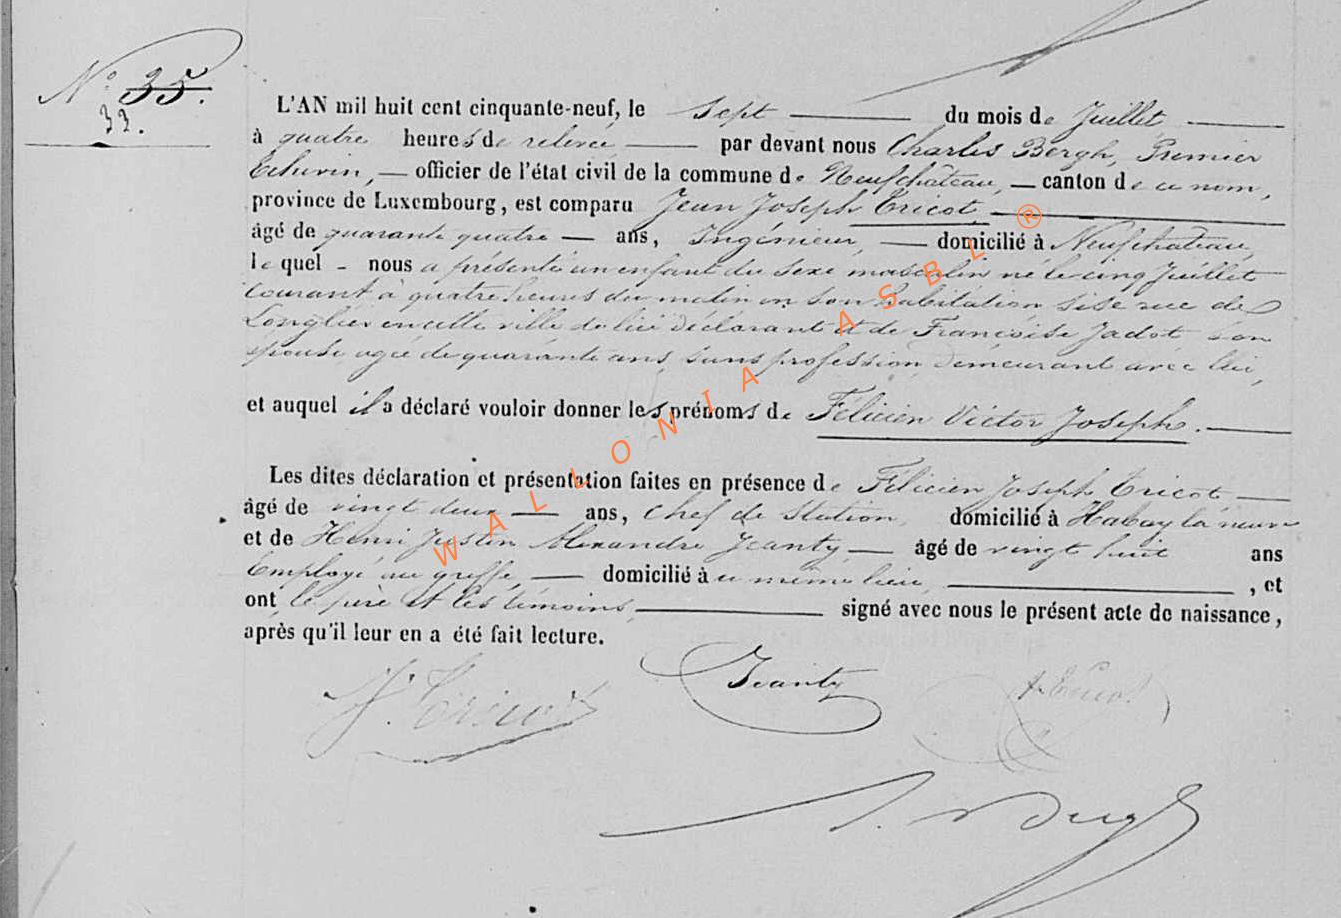 N° 35.
33.
L'AN mil huit cent cinquante-neuf, le sept du mois de Juillet
à quatre heures de relevée par devant nous Charles Bergh, Premier
Echevin, officier de l'état civil de la commune de Neufchateau, canton de ce nom,
province de Luxembourg, est comparu Jean Joseph Tricot,
âgé de quarante quatre ans, Ingénieur, domicilié à Neufchateau,
lequel nous a présenté un enfant du sexe masculin né le cinq Juillet
courant à quatre heures du matin en son habitation sise rue de
Longlier en cette ville de lui déclarant et de Françoise Jadot son
épouse agée de quarante ans, sans profession demeurant avec lui,
et auquel il a déclaré vouloir donner les prénoms de Félicien Victor Joseph.
Les dites déclaration et présentation faites en présence de Félicien Joseph Tricot
âgé de vingt deux ans, chef de Station, domicilié à Habay la neuve
et de Henri Justin Alexandre Jeanty, âgé de vingt huit ans
Employé au greffe, domicilié à ce même lieu, , et
ont le père et les témoins, signé avec nous le présent acte de naissance,
après qu'il leur en a été fait lecture.
J. Tricot Jeanty Tricot
Bergh
WALLONIA ASBL ®